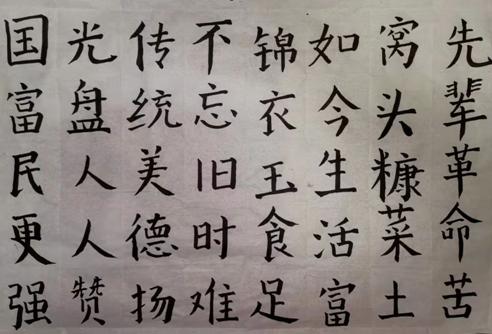 先辈革命苦
窝头糠菜土
如今生活富
锦衣玉食足
不忘旧时难
传统美德扬
光盘人人赞
国富民更强